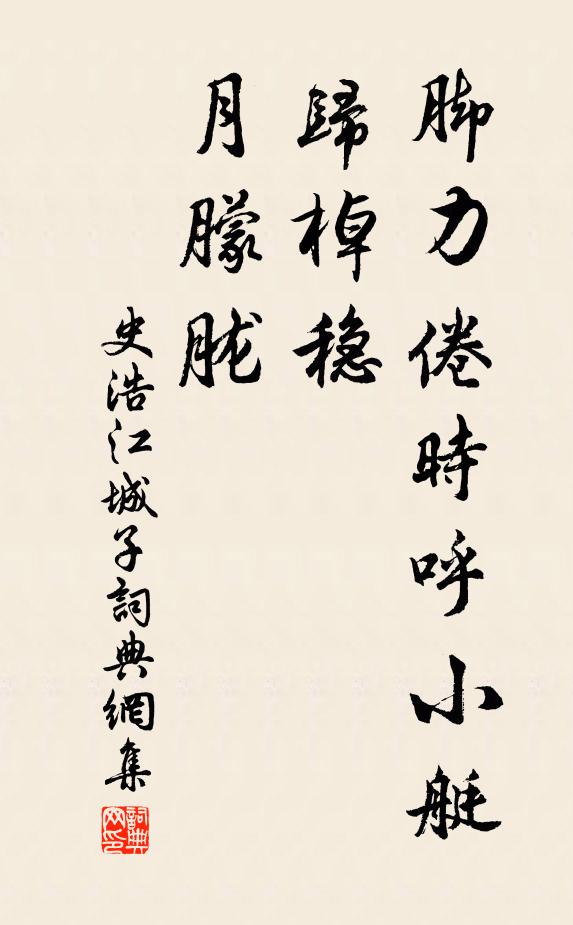 脚力倦時呼小艇
歸棹穏
月朦朧
史浩江城子詞典網集
詞典网印